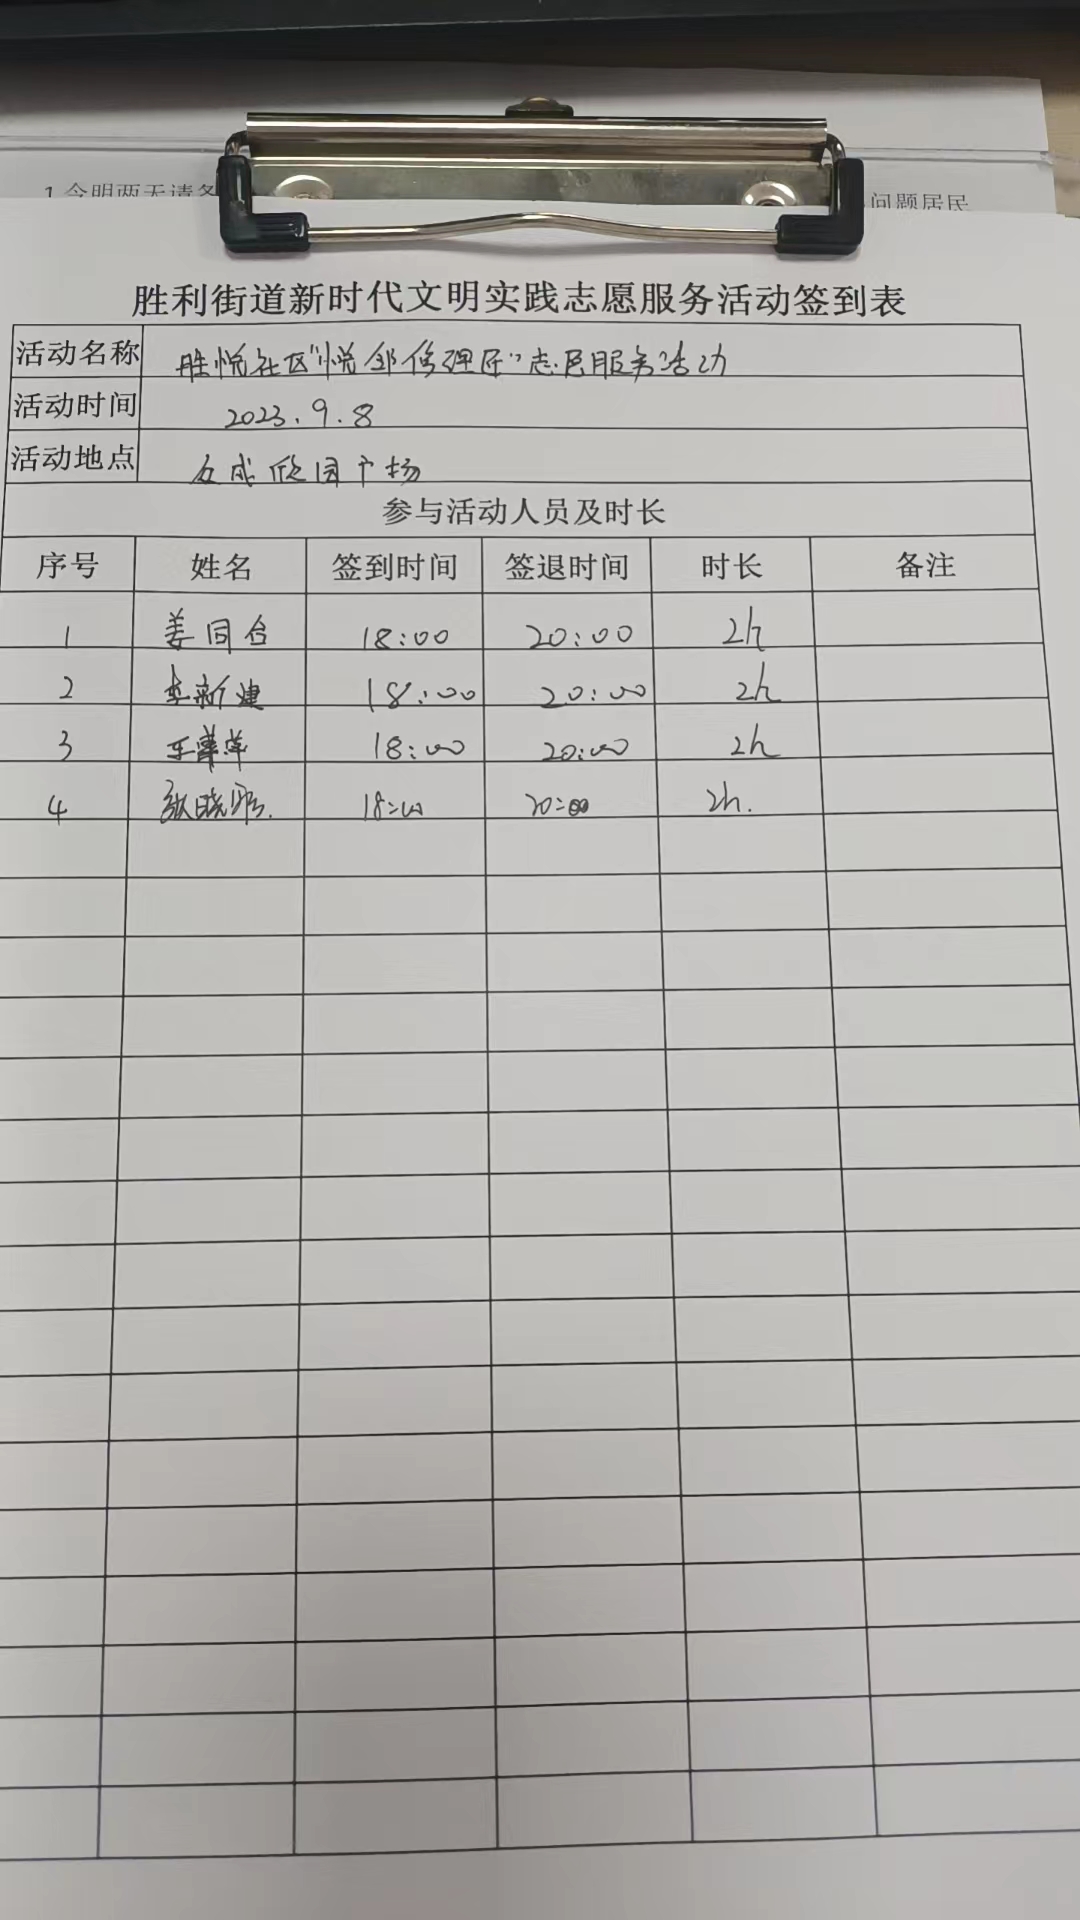 1.今明两天请各
问题居民
胜利街道新时代文明实践志愿服务活动签到表
活动名称 胜悦社区"悦邻修理匠"志愿服务活动
活动时间 2023.9.8
活动地点 众成欣园广场
参与活动人员及时长
序号 姓名 签到时间 签退时间 时长 备注
1 姜同台 18:00 20:00 2h
2 新建 18:00 20:00 2h
3 王 18:00 20:00 2h
4 张晓 18:00 20:00 2h.